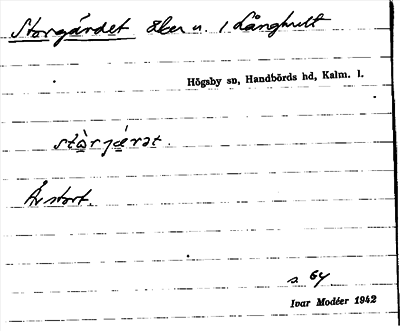 Storgärdet åker u. / Långhult
Högsby sn, Handbörds hd, Kalm. l.
Är stort.
s 64
Ivar Modéer 1942